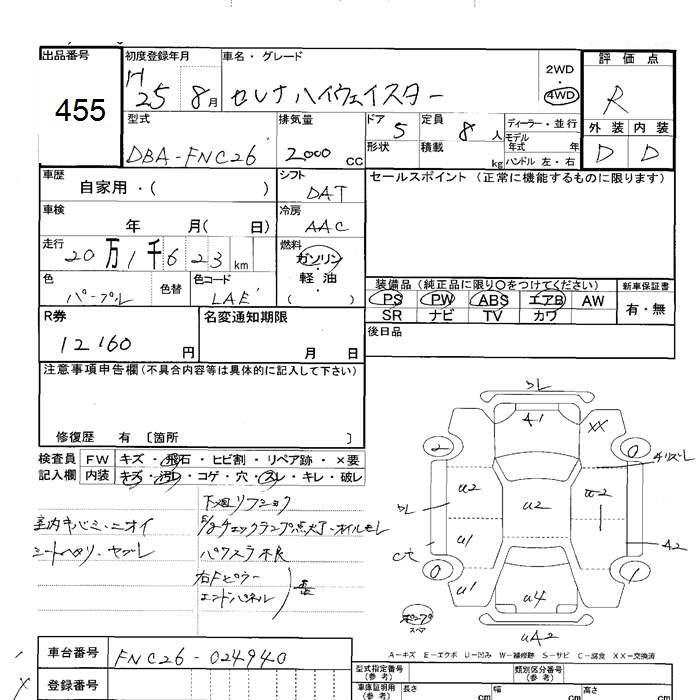 出品番号
455
初度登録年月
H 25 8月
車名・グレード
セレナハイウェイスター
2WD
4WD
評価点
R
外装 内装
D D
型式
DBA-FNC26
排気量
2000 CC
ドア
5
形状
定員
8 人
積載
kg
ディーラー・並行
モデル年式 年
ハンドル 左・右
車歴
自家用・( )
シフト
DAT
セールスポイント(正常に機能するものに限ります)
車検
年 月( 日)
冷房
AAC
走行
20万1千623km
燃料
ガソリン
・
軽油
( )
色
パープル
色替
色コード
LAE
装備品(純正品に限り○をつけてください)
PS PW ABS エアB AW
SR ナビ TV カワ
新車保証書
有・無
R券
12160 円
名変通知期限
月 日
後日品
注意事項申告欄(不具合内容等は具体的に記入して下さい)
修復歴 有 〔箇所 〕
検査員記入欄
FW キズ・飛石・ヒビ割・リペア跡・×要
内装 キズ・汚レ・コゲ・穴・スレ・キレ・破レ
室内キバミ・ニオイ
シートヘタリ・ヤブレ
下廻リフショク
チェックランプ点灯・オイルモレ
パワスラ不良
右Fピラー
エンドパネル
歪
ワレ
A1
XX
2
チリズレ
U2
U2
U2
ワレ
U1
A2
0
1
U1
U4
UA2
スペア
A-キズ E-エクボ U-凹み W-補修跡 S-サビ C-腐食 XX-交換済
車台番号
FNC26-024940
登録番号
型式指定番号
(参考)
類別区分番号
(参考)
車庫証明用
(参考)
長さ
cm
幅
cm
高さ
cm